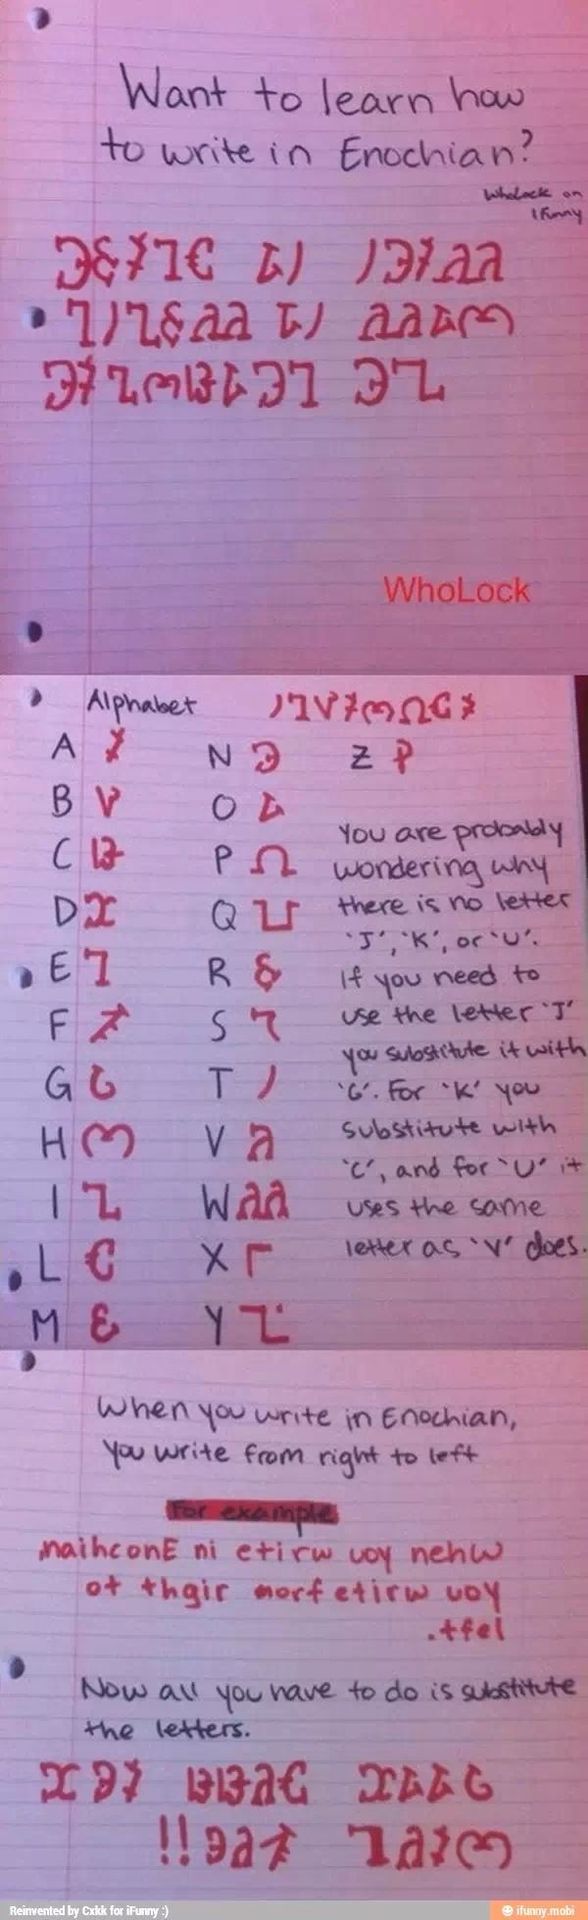 Want to learn how
to write in Enochian?
WhoLock on
IFunny
WhoLock
Alphabet
A N Z
B O
C P
D Q
E R
F S
G T
H V
I W
L X
M Y
You are probably
wondering why
there is no letter
'J', 'K', or 'U'.
If you need to
use the letter 'J'
you substitute it with
'G'. For 'K' you
substitute with
'C', and for 'U' it
uses the same
letter as 'V' does.
When you write in Enochian,
you write from right to left
For example
,naihconE ni etirw uoy nehW
ot thgir morf etirw uoy
.tfel
Now all you have to do is substitute
the letters.
Reinvented by Cxkk for iFunny :)
ifunny.mobi